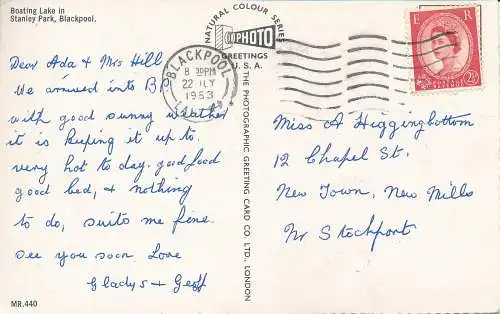 Boating Lake in
Stanley Park, Blackpool.
Dear Ada & Mrs Hill,
We arrived into B.P
with good sunny weather
it is keeping it up to.
very hot to day. good food
good bed, & nothing
to do, suits me fine.
See you soon. Love
Gladys & Geoff
MR.440
NATURAL COLOUR SERIES
PHOTO
GREETINGS
U.S.A.
THE PHOTOGRAPHIC GREETING CARD CO LTD., LONDON
BLACKPOOL
8 30PM
22 JLY
1953
E R
2½D
Miss A Higginbottom
12 Chapel St.
New Town, New Mills
Nr Stockport